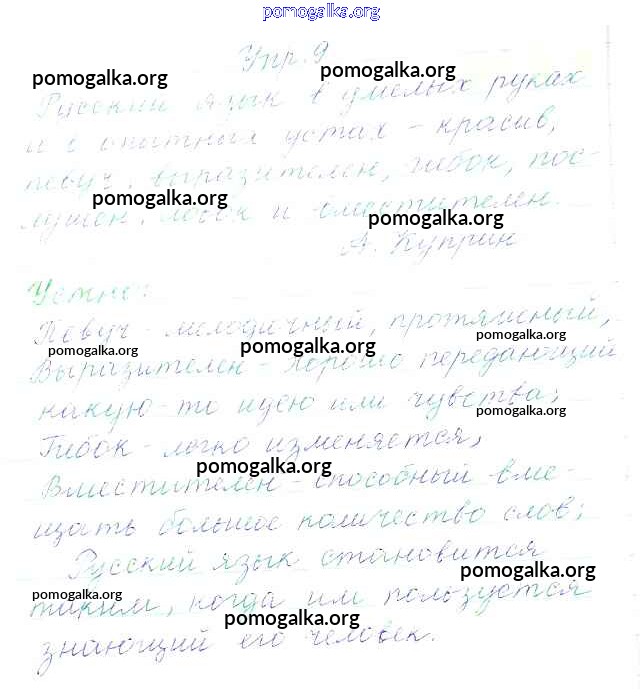 pomogalka.org
Упр. 9
pomogalka.org
pomogalka.org
Русский язык в умелых руках
и в опытных устах - красив,
певуч, выразителен, гибок, пос-
pomogalka.org
лушен, ловок и вместителен.
pomogalka.org
А. Куприн
Устно:
Певуч - мелодичный, протяжный,
pomogalka.org
pomogalka.org
pomogalka.org
Выразителен - хорошо передающий
какую-то идею или чувства;
pomogalka.org
Гибок - легко изменяется,
pomogalka.org
Вместителен - способный вме-
щать большое количество слов;
Русский язык становится
pomogalka.org
таким, когда им пользуется
pomogalka.org
pomogalka.org
знающий его человек.